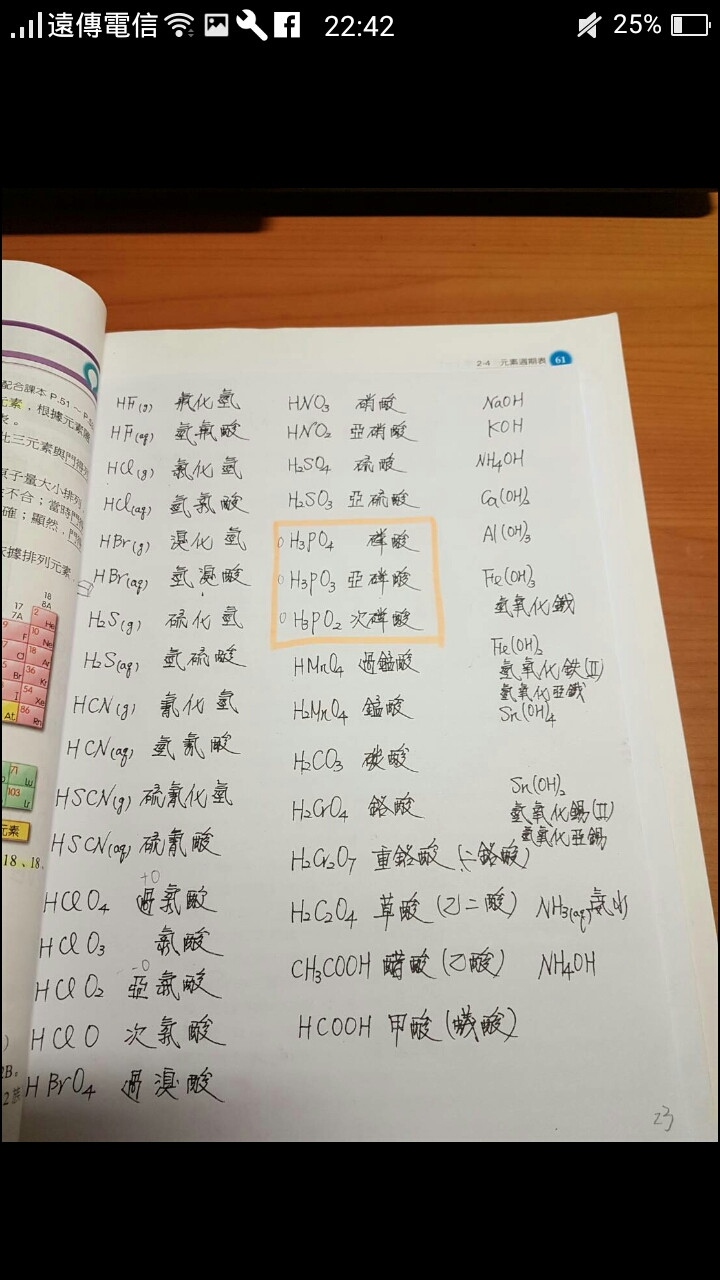 遠傳電信 22:42 25%
2-4 元素週期表 61
配合課本 P.51～P.
元素，根據元素
此三元素與門得列
原子量大小排列，
不合；當時門
確；顯然，門
依據排列元素
18
17 8A
7A 2 He
9 F 10 Ne
17 18 Ar
35 Br 36 Kr
53 I 54 Xe
At 86 Rn
71 Lu
103
元素
18、18、
HF(g) 氟化氫
HF(aq) 氫氟酸
HCl(g) 氯化氫
HCl(aq) 氫氯酸
HBr(g) 溴化氫
HBr(aq) 氫溴酸
H₂S(g) 硫化氫
H₂S(aq) 氫硫酸
HCN(g) 氰化氫
HCN(aq) 氫氰酸
HSCN(g) 硫氰化氫
HSCN(aq) 硫氰酸
+O
HClO₄ 過氯酸
HClO₃ 氯酸
-O
HClO₂ 亞氯酸
HClO 次氯酸
HBrO₄ 過溴酸
HNO₃ 硝酸
HNO₂ 亞硝酸
H₂SO₄ 硫酸
H₂SO₃ 亞硫酸
H₃PO₄ 磷酸
H₃PO₃ 亞磷酸
H₃PO₂ 次磷酸
HMnO₄ 過錳酸
H₂MnO₄ 錳酸
H₂CO₃ 碳酸
H₂CrO₄ 鉻酸
H₂Cr₂O₇ 重鉻酸(二鉻酸)
H₂C₂O₄ 草酸(乙二酸)
CH₃COOH 醋酸(乙酸)
HCOOH 甲酸(蟻酸)
NaOH
KOH
NH₄OH
Ca(OH)₂
Al(OH)₃
Fe(OH)₃
氫氧化鐵
Fe(OH)₂
氫氧化鉄(II)
氫氧化亞鐵
Sn(OH)₄
Sn(OH)₂
氫氧化錫(II)
氫氧化亞錫
NH₃(aq) 氨水
NH₄OH
23